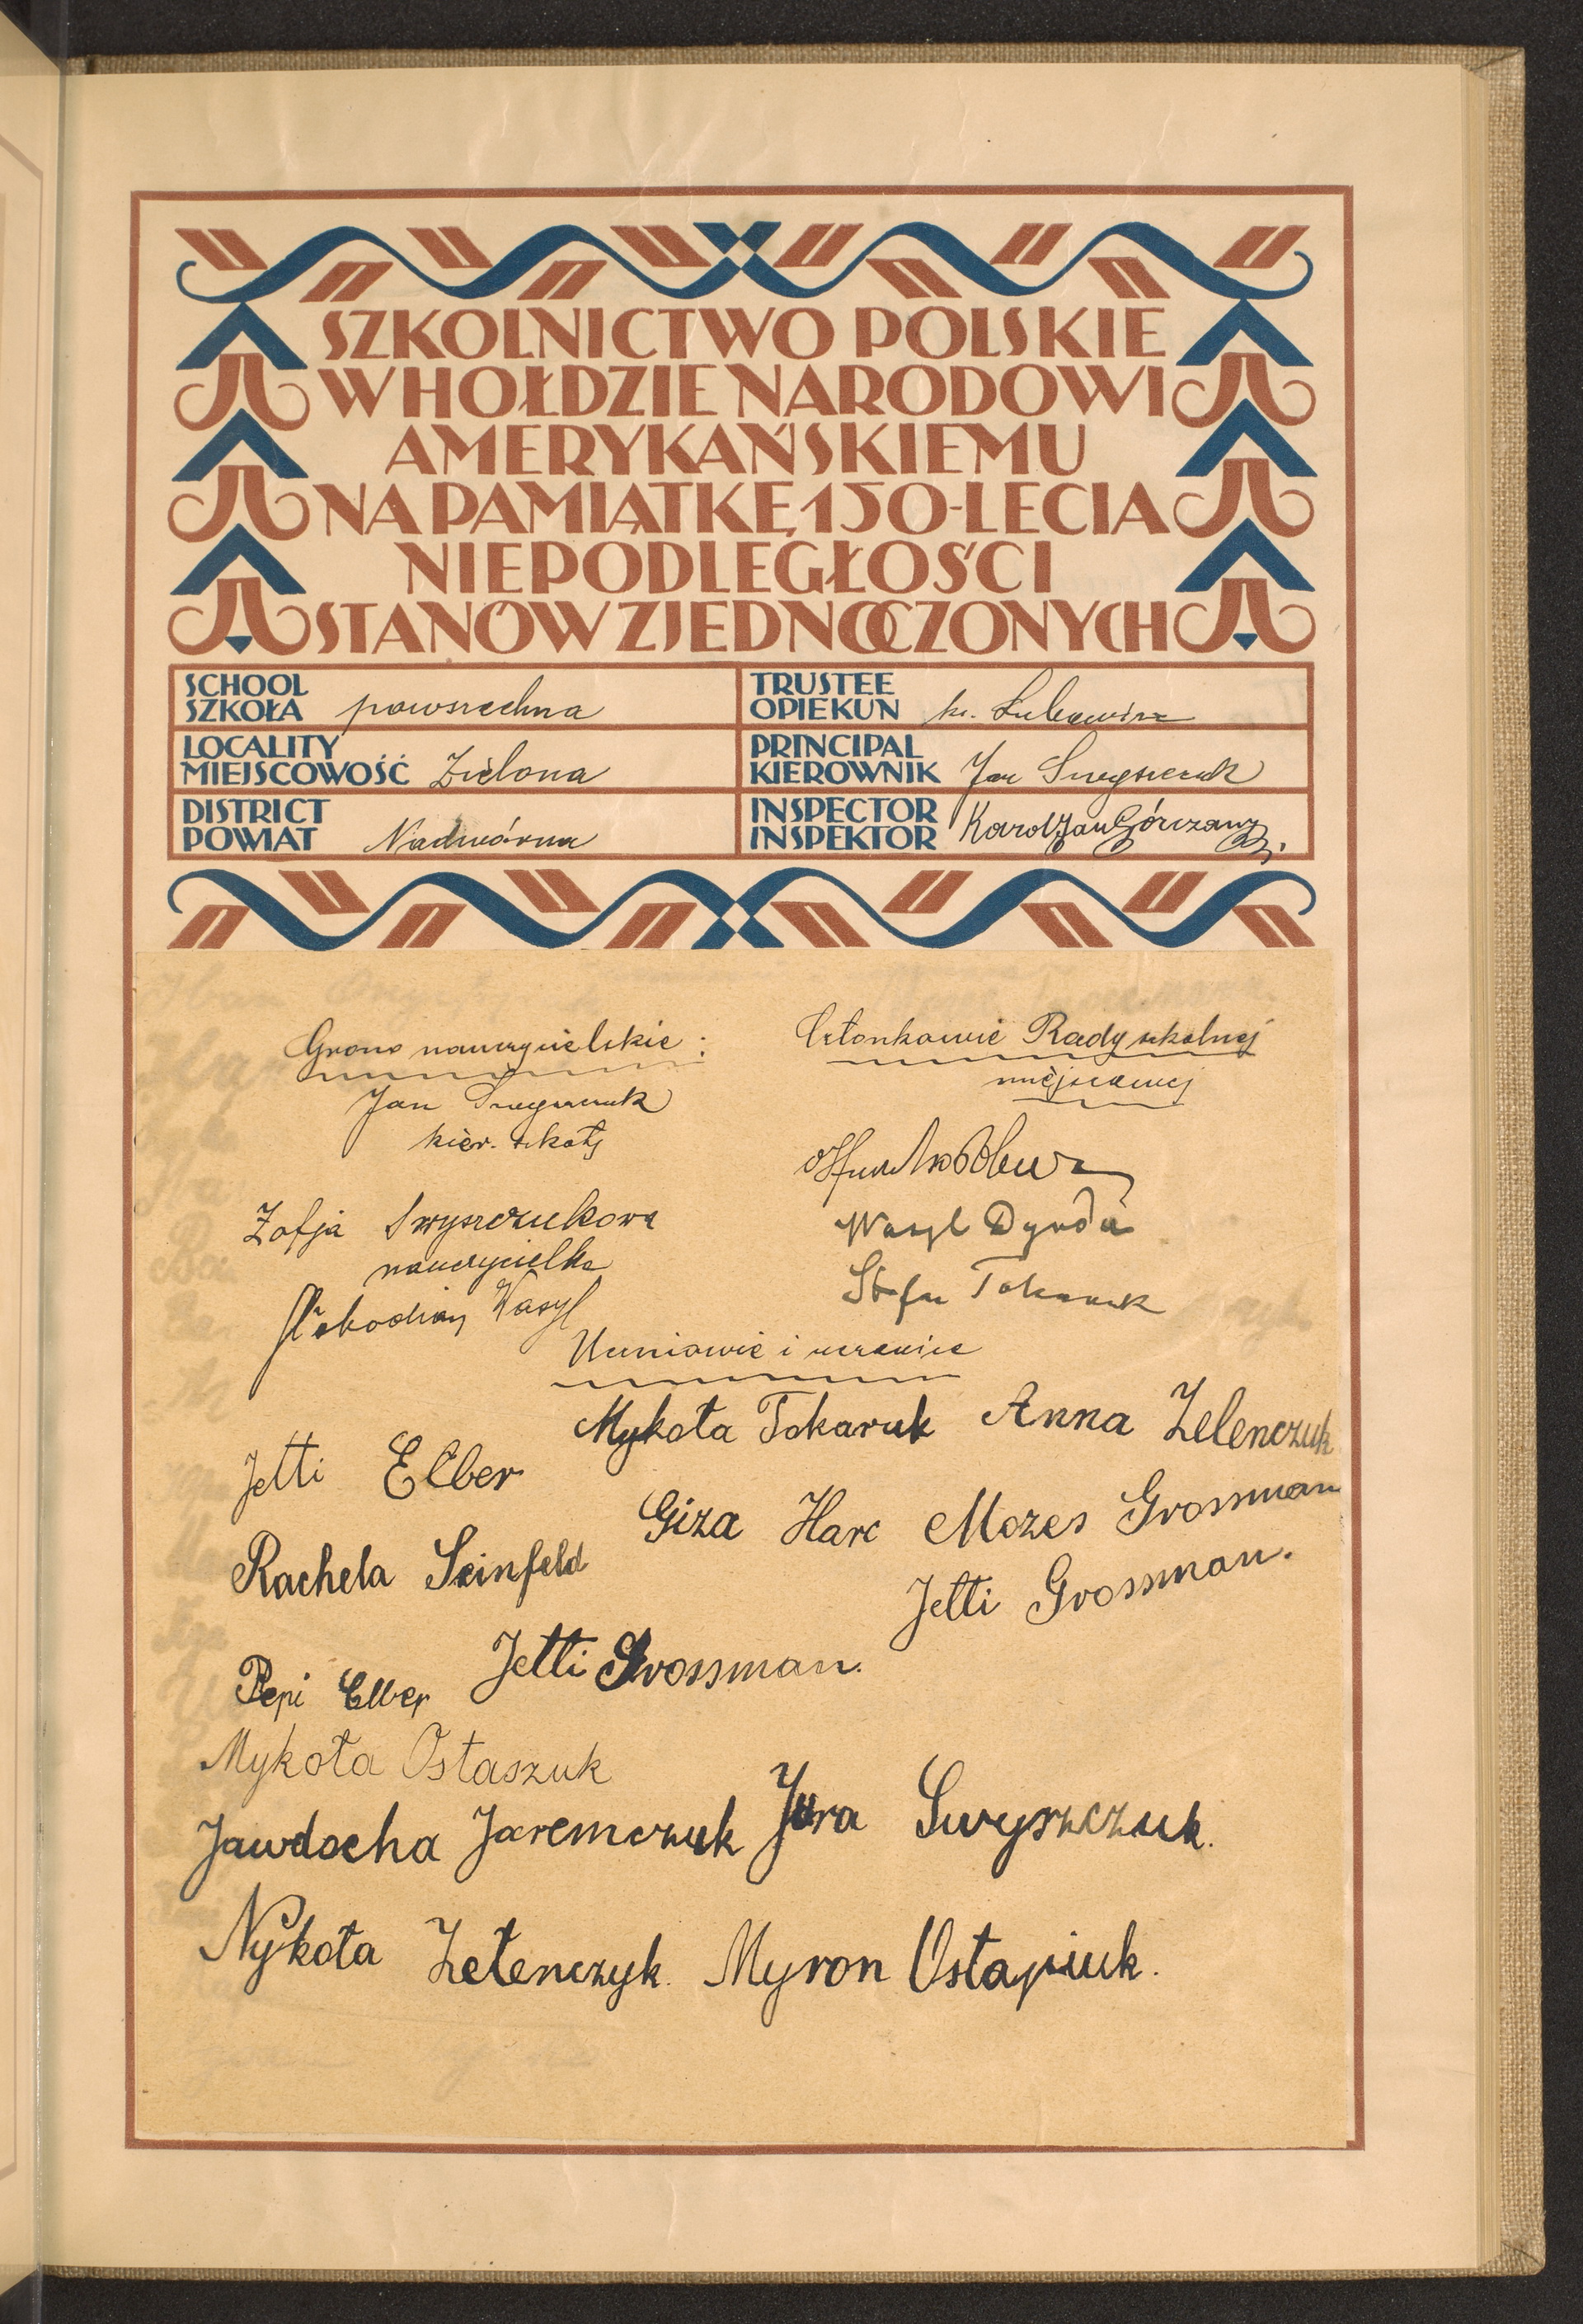 SZKOLNICTWO POLSKIE
W HOŁDZIE NARODOWI
AMERYKAŃSKIEMU
NA PAMIĄTKĘ 150-LECIA
NIEPODLEGŁOŚCI
STANÓW ZJEDNOCZONYCH
SCHOOL
SZKOŁA powszechna
TRUSTEE
OPIEKUN ks.
LOCALITY
MIEJSCOWOŚĆ Zielona
PRINCIPAL
KIEROWNIK Jan Swyszczuk
DISTRICT
POWIAT Nadwórna
INSPECTOR
INSPEKTOR Karol Jan Górczany
Grono nauczycielskie:
Jan Swyszczuk
kier. szkoły
Zofja Swyszczukowa
nauczycielka
Wasyl
Członkowie Rady szkolnej
miejscowej
Wasyl Dynda
Stefan Tokaruk
Uczniowie i uczenice
Mykoła Tokaruk Anna Zelenczuk
Jetti Elber
Giza Harc Mozes Grossman
Rachela Seinfeld
Jetti Grossman.
Jetti Grossman.
Pepi Elber
Mykoła Ostaszuk
Jawdocha Jaremczuk Jura Swyszczuk.
Nykoła Zełenczyk. Myron Ostapiuk.